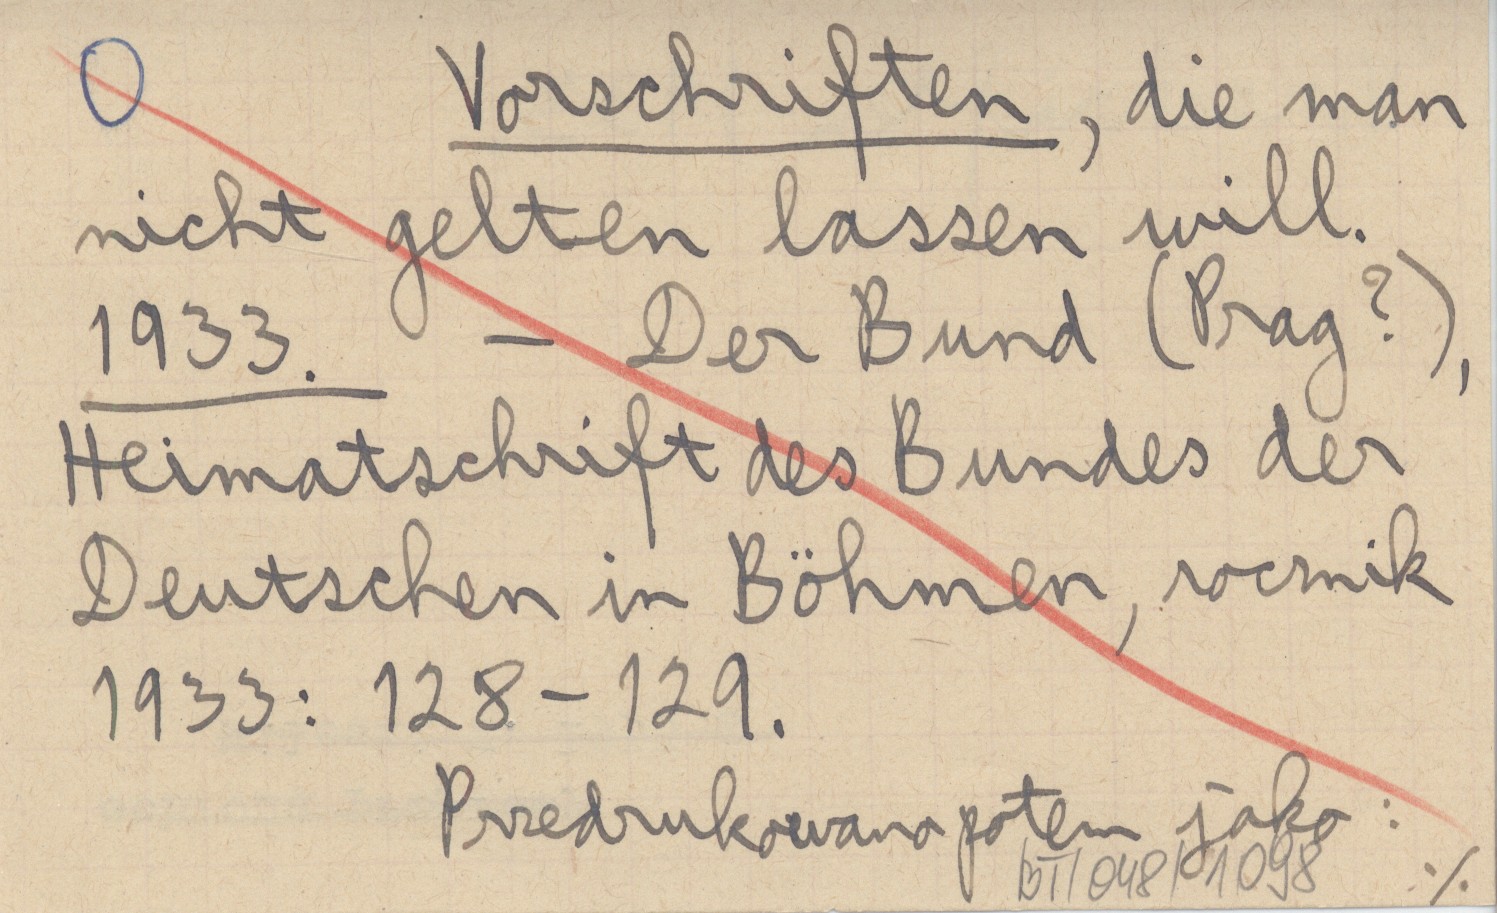 Vorschriften, die man
nicht gelten lassen will.
1933. – Der Bund (Prag?),
Heimatschrift des Bundes der
Deutschen in Böhmen, rocznik
1933: 128–129.
Przedrukowano potem jako:
BT/048/1098 ./.